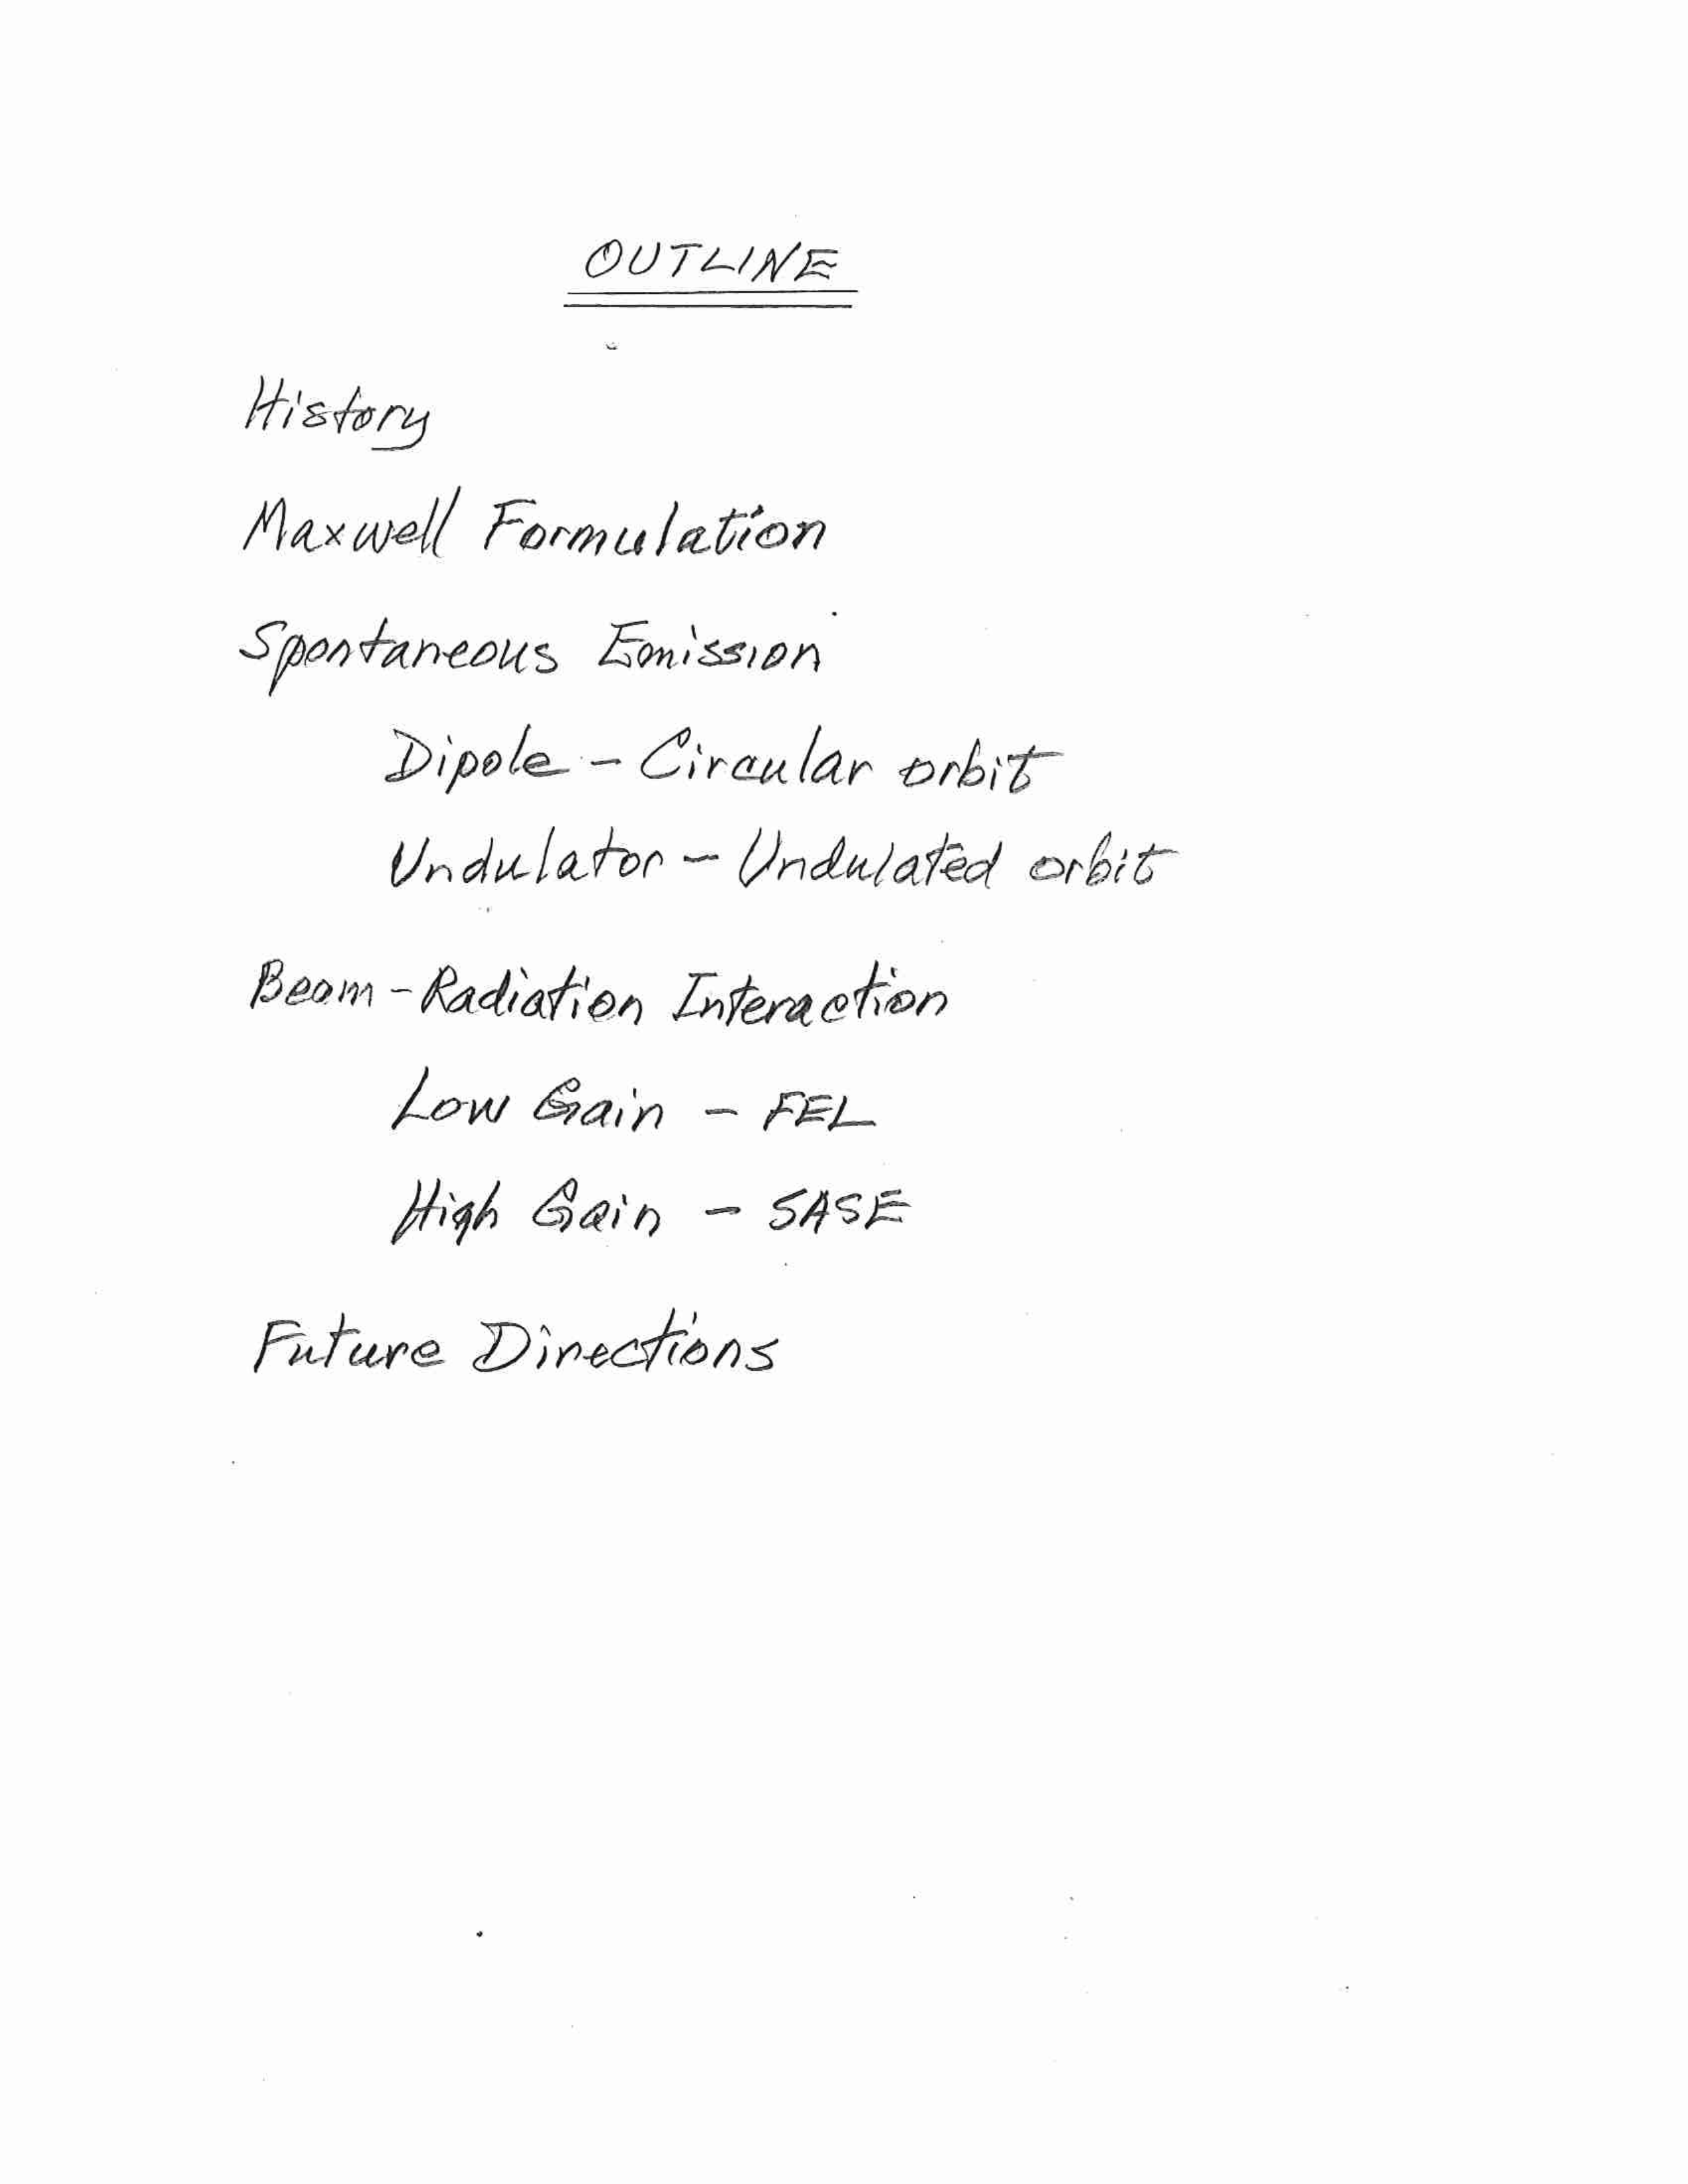 OUTLINE
History
Maxwell Formulation
Spontaneous Emission
Dipole - Circular orbit
Undulator - Undulated orbit
Beam - Radiation Interaction
Low Gain - FEL
High Gain - SASE
Future Directions